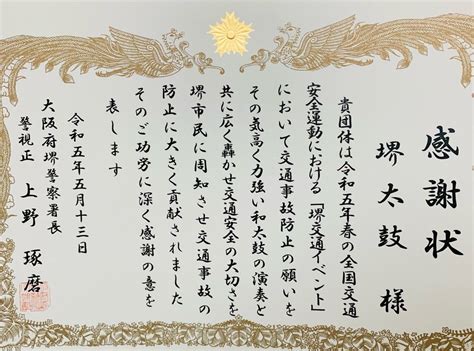 感謝状
堺太鼓 様
貴団体は令和五年春の全国交通
安全運動における「堺交通イベント」
において交通事故防止の願いを
その気高く力強い和太鼓の演奏と
共に広く轟かせ交通安全の大切さを
堺市民に周知させ交通事故の
防止に大きく貢献されました
そのご功労に深く感謝の意を
表します
令和五年五月十三日
大阪府堺警察署長
警視正 上野 琢磨